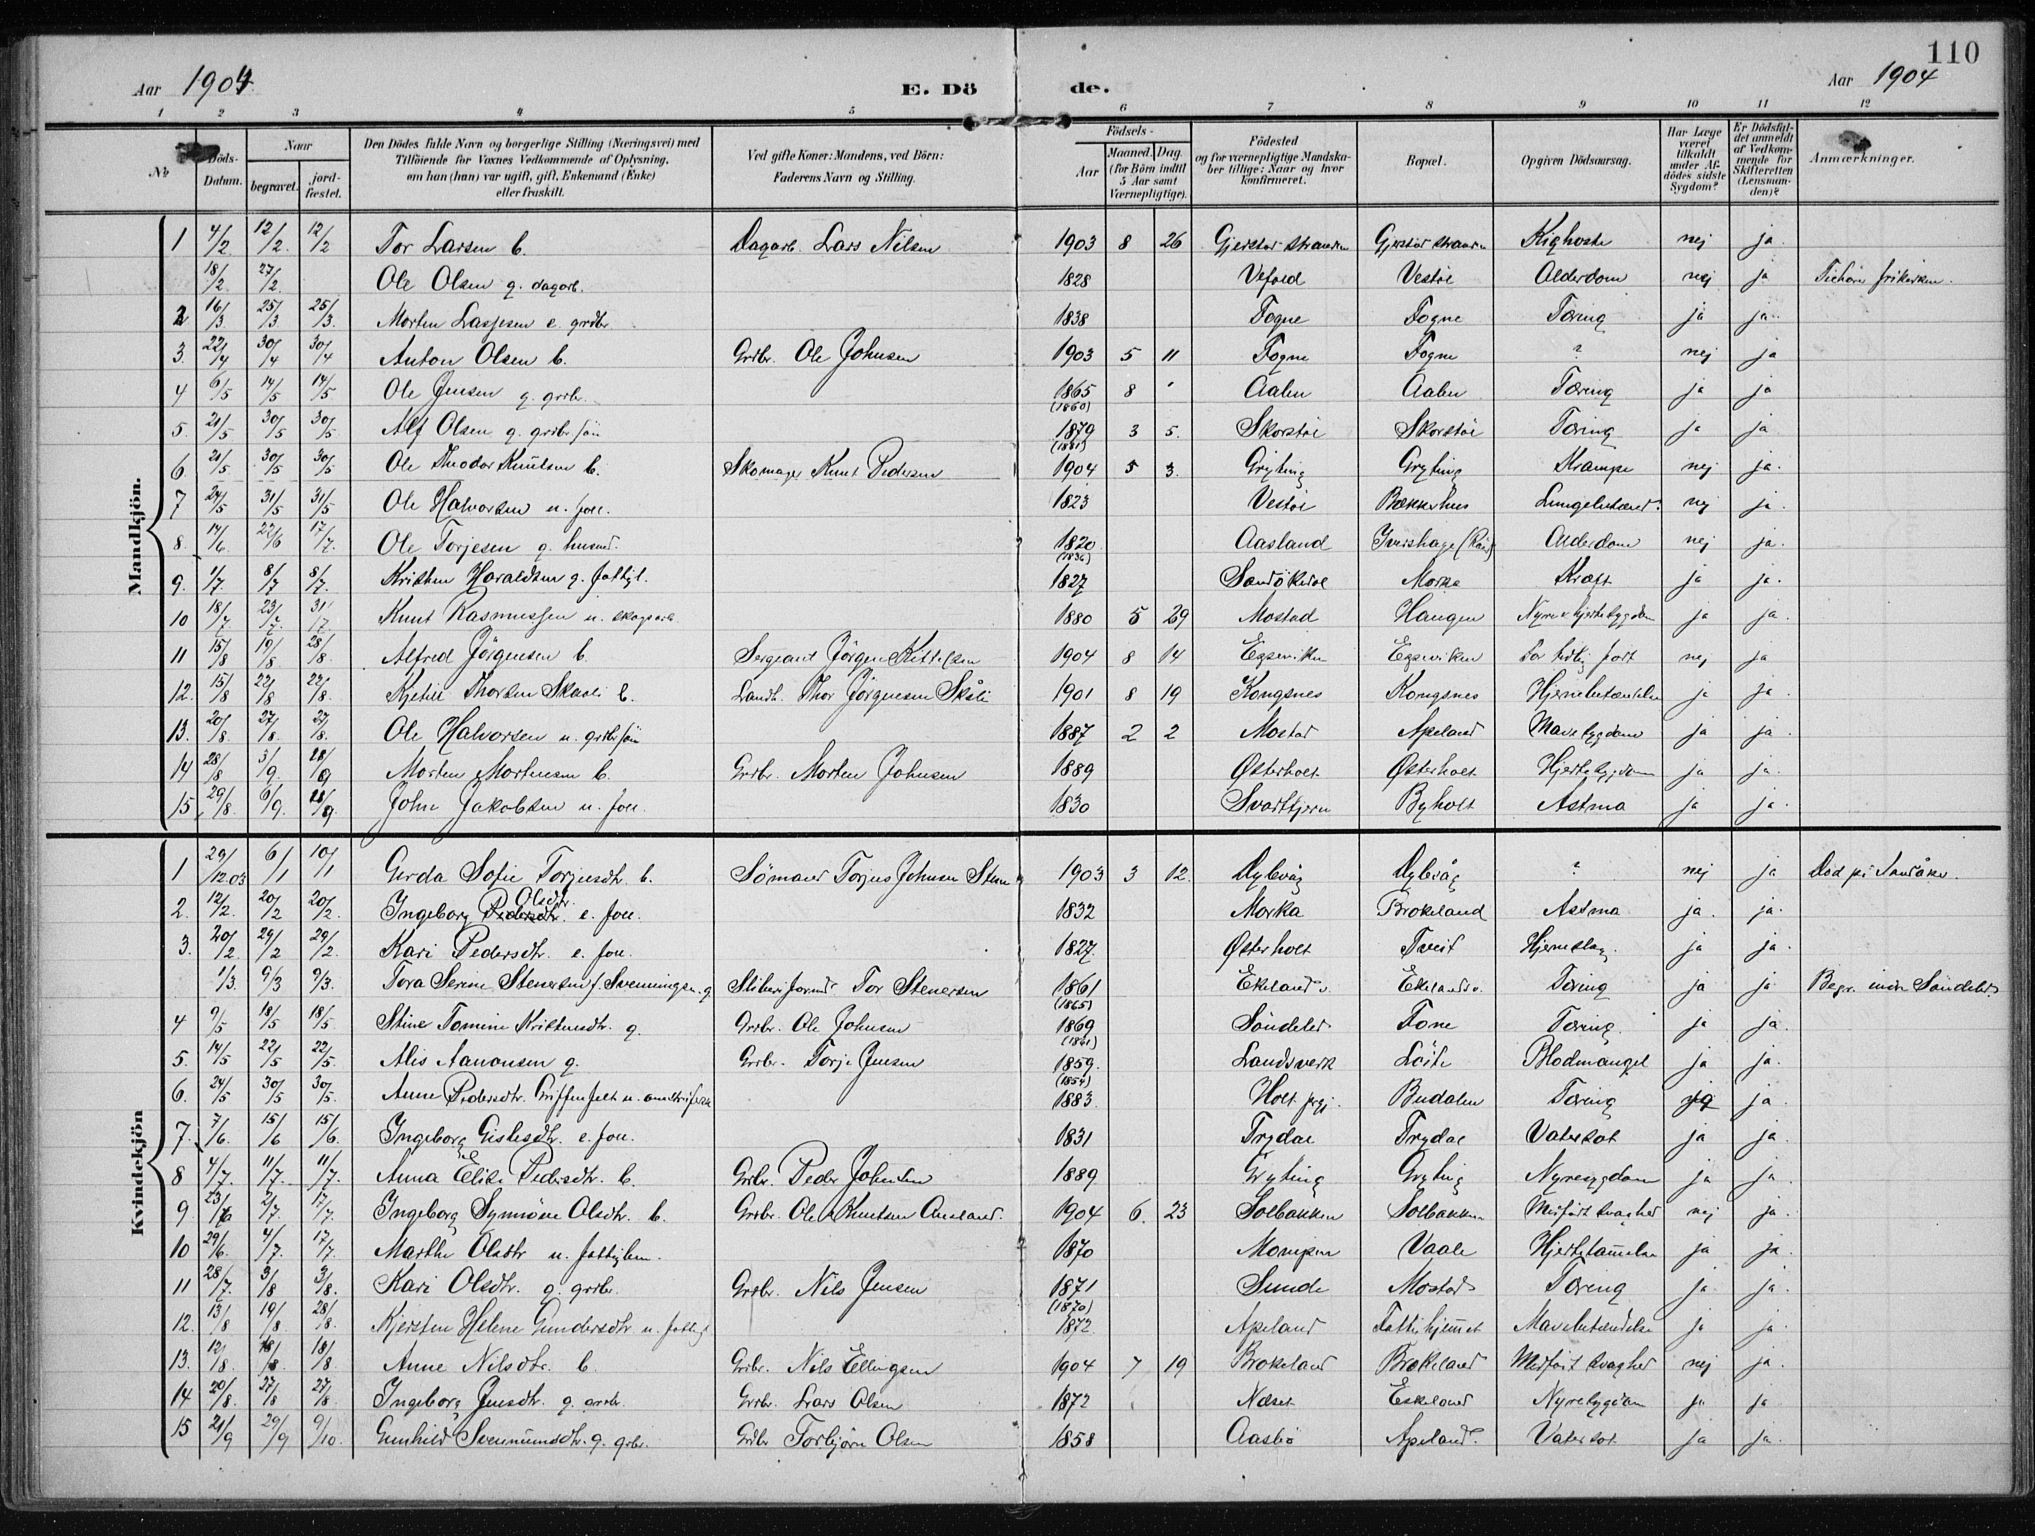 110
Aar 1904 E. Dö de. Aar 1904
1 2 3 4 5 6 7 8 9 10 11 12
No Döds-Datum. Naar begravet. jord-fæstet. Den Dödes fulde Navn og borgerlige Stilling (Næringsvei) med Tilföiende for Voxnes Vedkommende af Oplysning, om han (hun) var ugift, gift, Enkemand (Enke) eller fraskilt. Ved gifte Koner: Mandens, ved Börn: Faderens Navn og Stilling. Födsels- Aar Maaned. Dag. (for Börn indtil 5 Aar samt Værnepligtige). Födested og for værnepligtige Mandska-ber tillige: Naar og hvor konfirmeret. Bopæl. Opgiven Dödsaarsag. Har Læge været tilkaldt under Af-dödes sidste Sygdom? Er Dödsfal-det anmeldt af Vedkom-mende for Skifteretten (Lensman-den)? Anmærkninger.
Mandkjön.
1 4/2 12/2 12/2 Tor Larsen b. Dagarb. Lars Nilsen 1903 8 26 Gjerstadstranden Gjerstadstranden Kighoste nej ja
18/2 27/2 Ole Olsen g. dagarb. 1828 Vefald Vestøl Alderdom nej ja
2 16/3 25/3 25/3 Morten Lassesen e. grdbr. 1838 Fogne Fogne Tæring ja ja
3. 22/4 30/4 30/4 Anton Olsen b. Grdbr. Ole Johnsen 1903 5 11 Fogne Fogne ? nej ja
4 6/5 14/5 14/5 Ole Jensen g. grdbr. 1865 (1860) 8 Aalen Aalen Tæring ja ja
5. 21/5 30/5 30/5 Alf Olsen g. grdbr.søn 1879 (1881) 3 5. Skorstøl Skorstøl Tæring ja ja
6 21/5 30/5 30/5 Ole Theodor Knutsen b. Skomager Knut Pedersen 1904 5 3. Gryting Gryting Krampe nej ja.
7 24/5 31/5 31/5 Ole Halvorsen u. foll. 1823 Vestøl Bækkerhus nej ja.
8. 14/6 22/6 17/7. Ole Torjesen g. husmd. 1820 (1836) Aasland Alderdom nej ja.
9. 1/7. 8/7 8/7. Kristen Haraldsen g. fattigl. 1827 Sandökedal Morka Kræft ja ja.
10 18/7 23/7. 31/7 Knut Rasmussen u. skogsarb. 1880 5 29 Mostad Haugen ja ja.
11 15/8 19/8. 28/8. Alfred Jörgensen b. Sergeant Jörgen Kittelsen 1904 8 14 Egseviken Egseviken For tidlig født nej ja
12. 15/8 22/8 22/8. Kjetil Thorsen Skaali b. Landh. Thor Jörgensen Skåli 1901 8 19 Kongsnes Kongsnes Hjernebetændelse ja ja.
13. 20/8 27/8. 27/8. Ole Halvorsen u. grdbr.søn 1887 2 2 Mostad Apeland Mavesygdom ja ja.
14 28/8 3/9. 28/9 Morten Mortensen b. Grdbr. Morten Johnsen 1889 Østerholt Østerholt Hjertesygdom ja ja.
15 29/8. 6/9. 28/9 John Jakobsen u. foll. 1830 Svarttjern Byholt Astma ja ja.
Kvindekjön
1 29/12.03 6/1 10/1 Gerda Sofie Torjusdtr. b. Sömand Torjus Johnsen Stene 1903 3 12. Dylevåg Dylevåg ? nej ja
2. 12/2. 20/2 20/2. Ingeborg Pedersdtr. Olsdtr. e. foll. 1832 Morka Brokeland Astma ja. ja.
3. 20/2. 29/2 29/2. Kari Pedersdtr. e. foll. 1827. Østerholt Tveit Hjerneslag ja ja.
1/3. 9/3 9/3. Tora Serine Stenersen f. Svenningsen. g. Tor Stenersen 1861 (1865) Ekeland Ekeland Tæring ja ja. Begr. inden Söndeled.
4 9/5 18/5 18/5. Stine Tomine Kristensdtr. g. Grdbr. Ole Johnsen 1869 (1861) Söndeled Fone Tæring. ja ja.
5. 14/5 22/5 22/5. Alis Aanonsen g. Grdbr. Torje Jensen 1859. (1854) Landsverk Löite Blodmangel ja ja.
6. 24/5 30/5 30/5. Anne Pedersdtr. Griffenfelt u. 1883. Holt prgj. Budalen Tæring ja ja.
7. 7/6. 15/6 15/6. Ingeborg Gislesdtr. e. foll. 1831 Trydal Trydal Vatersot ja ja.
8 4/7. 11/7. 11/7. Anna Elise Pedersdtr. b. Grdbr. Peder Johnsen 1889 Gryting Gryting Nyresygdom ja ja.
9 23/6 2/7. 17/7. Ingeborg Synnöve Olsdtr. b. Grdbr. Ole Knutsen 1904 6. 23 Solbakken Solbakken Medfödt svaghed nej ja.
10 29/6. 4/7. 17/7. Marthe Olsdtr u. fattiglem. 1870 Mompen Vaale ja ja.
11 28/7. 3/8 3/8. Kari Olsdtr. g. grdbr. Grdbr. Nils Jensen 1871 (1870) Sunde Mostad Tæring ja ja.
12. 13/8 19/8 28/8. Kjersten Helene Gundersdtr u. fattigl 1872. Apeland Fattighjemmet Mavebetændelse ja ja.
13. 12/8. 18/8 18/8 Anne Nilsdtr. b. Grdbr. Nils Ellingsen 1904 7 19 Brokeland Brokeland Medfödt svaghed nej ja.
14 20/8. 27/8 27/8. Ingeborg Jensdtr. g. grdbr. Grdbr. Lars Olsen 1872 Næset Eskeland Nyresygdom ja ja
15 21/9 29/9 9/10. Gunhild g. grdbr. Grdbr Torbjörn Olsen 1858 Aasbø Apeland Vatersot. ja ja.